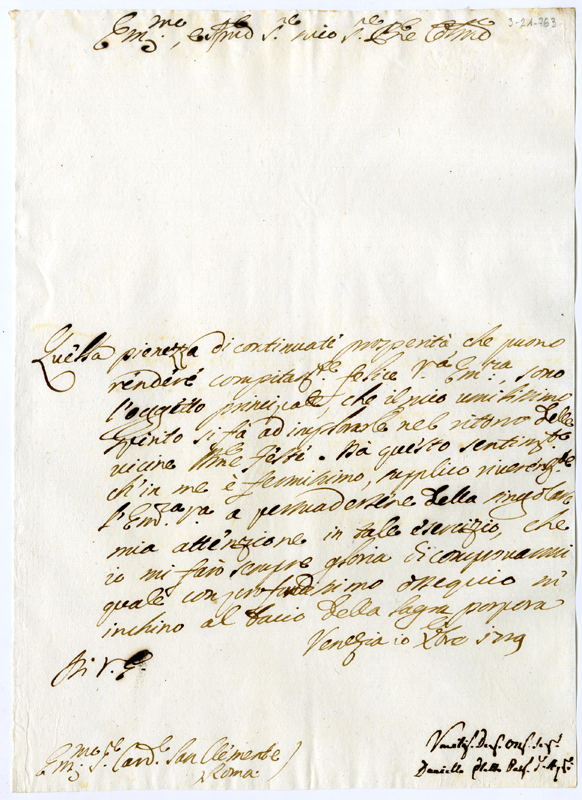 3-21-763
Em.mo, e Rmo S.re mio S.re
Quella pienezza di continuate prosperità che puono
rendere compitam.te felice V.a Em.za, sono
l'oggetto principale, che il mio umilissimo
Spirito si fà ad implorarle nel ritorno delle
vicine Feste. Da questo sentim.to
ch'in me è fermissimo, supplico riverentem.te
l'Em.a V.a a persuadersene della singolare
mia attenzione in tale esercizio, che
io mi farò sempre gloria di comprovarmi
quale con profundissimo ossequio m'
inchino al bacio della sagra porpora
Venezia 10 Xbre 1729
Di V. E.
Em.mo S.r Card.le San Clemente
Roma
Daniello